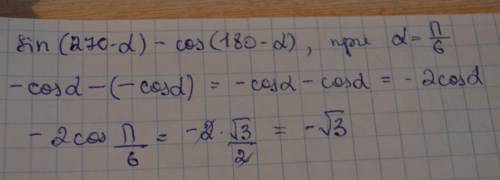 sin (270-α) - cos (180-α), при α = П/6
-cosα - (-cosα) = -cosα - cosα = -2cosα
-2cos П/6 = -2 · √3/2 = -√3